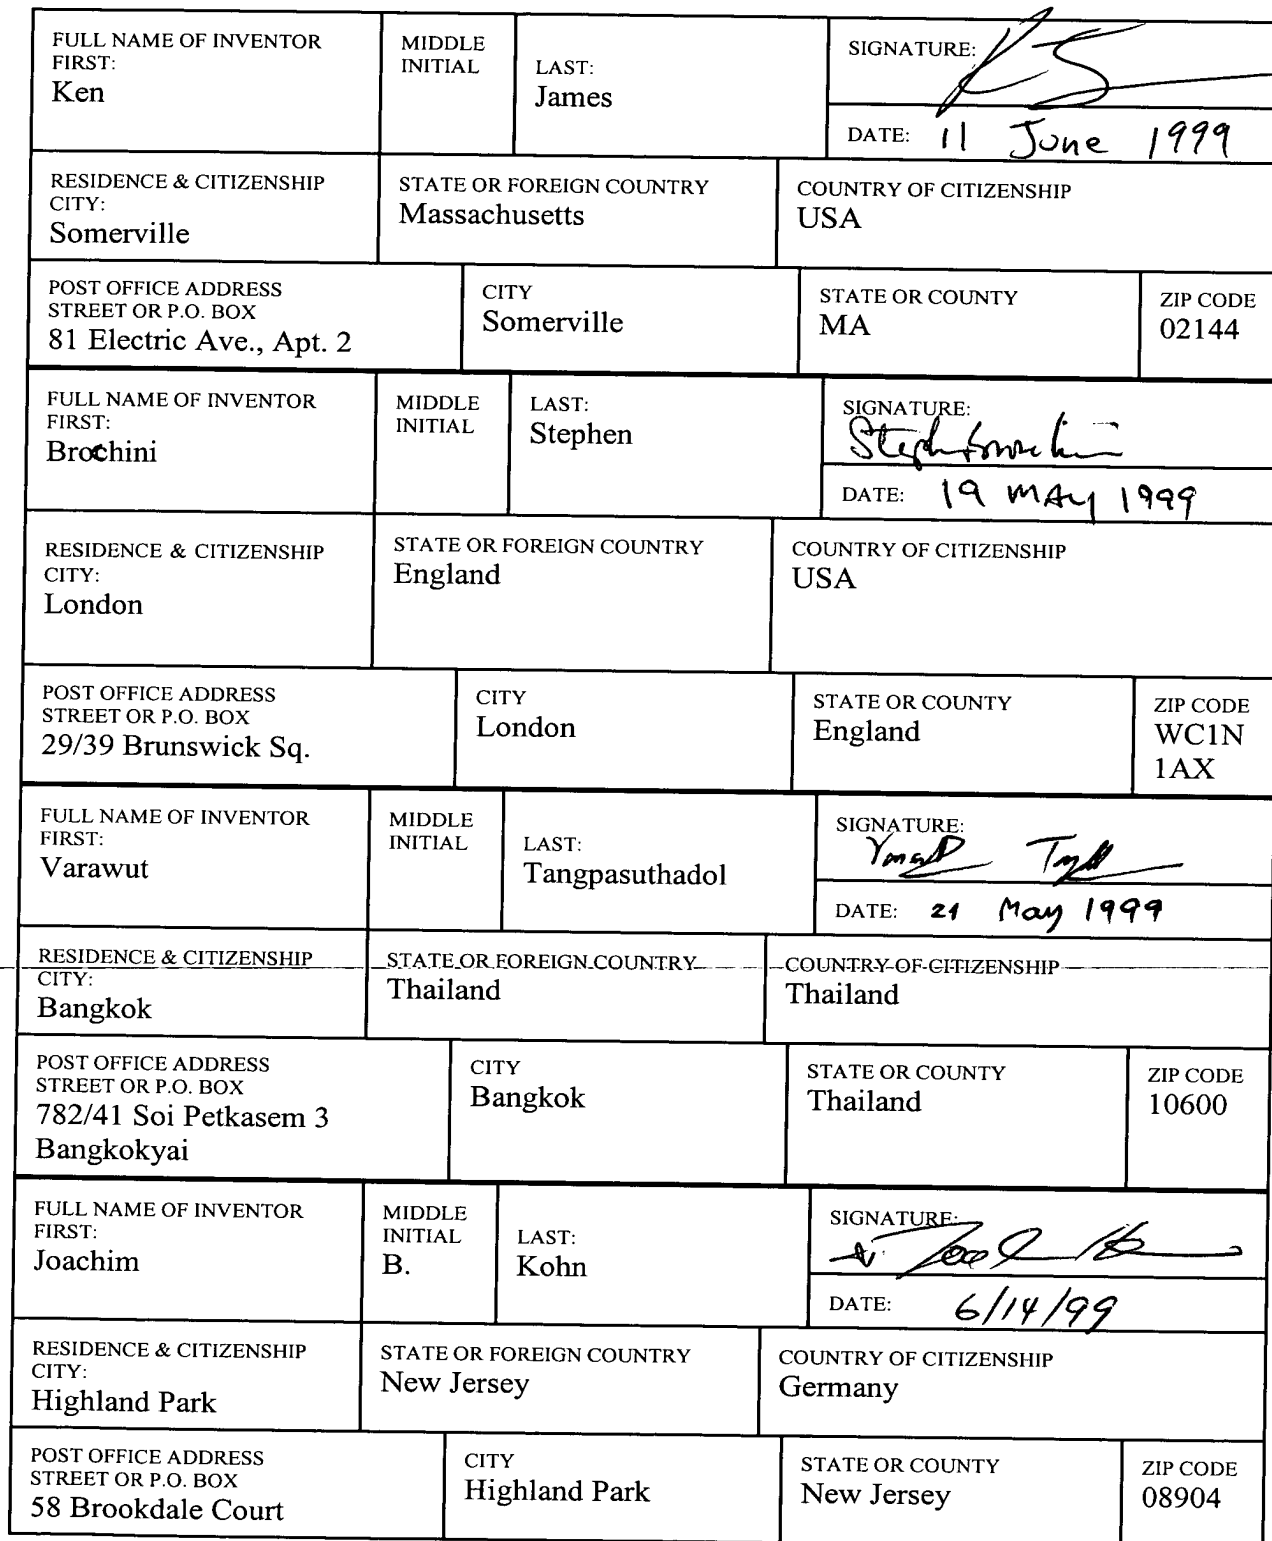 FULL NAME OF INVENTOR
FIRST:
Ken
MIDDLE
INITIAL
LAST:
James
SIGNATURE:
DATE: 11 June 1999
RESIDENCE & CITIZENSHIP
CITY:
Somerville
STATE OR FOREIGN COUNTRY
Massachusetts
COUNTRY OF CITIZENSHIP
USA
POST OFFICE ADDRESS
STREET OR P.O. BOX
81 Electric Ave., Apt. 2
CITY
Somerville
STATE OR COUNTY
MA
ZIP CODE
02144
FULL NAME OF INVENTOR
FIRST:
Brocchini
MIDDLE
INITIAL
LAST:
Stephen
SIGNATURE:
DATE: 19 MAY 1999
RESIDENCE & CITIZENSHIP
CITY:
London
STATE OR FOREIGN COUNTRY
England
COUNTRY OF CITIZENSHIP
USA
POST OFFICE ADDRESS
STREET OR P.O. BOX
29/39 Brunswick Sq.
CITY
London
STATE OR COUNTY
England
ZIP CODE
WC1N
1AX
FULL NAME OF INVENTOR
FIRST:
Varawut
MIDDLE
INITIAL
LAST:
Tangpasuthadol
SIGNATURE:
DATE: 21 May 1999
RESIDENCE & CITIZENSHIP
CITY:
Bangkok
STATE OR FOREIGN COUNTRY
Thailand
COUNTRY OF CITIZENSHIP
Thailand
POST OFFICE ADDRESS
STREET OR P.O. BOX
782/41 Soi Petkasem 3
Bangkokyai
CITY
Bangkok
STATE OR COUNTY
Thailand
ZIP CODE
10600
FULL NAME OF INVENTOR
FIRST:
Joachim
MIDDLE
INITIAL
B.
LAST:
Kohn
SIGNATURE:
DATE: 6/14/99
RESIDENCE & CITIZENSHIP
CITY:
Highland Park
STATE OR FOREIGN COUNTRY
New Jersey
COUNTRY OF CITIZENSHIP
Germany
POST OFFICE ADDRESS
STREET OR P.O. BOX
58 Brookdale Court
CITY
Highland Park
STATE OR COUNTY
New Jersey
ZIP CODE
08904